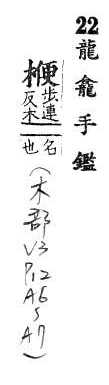 22龍龕手鑑
楩步連反木名也
(木部
V3
P12
A6
S
A7)